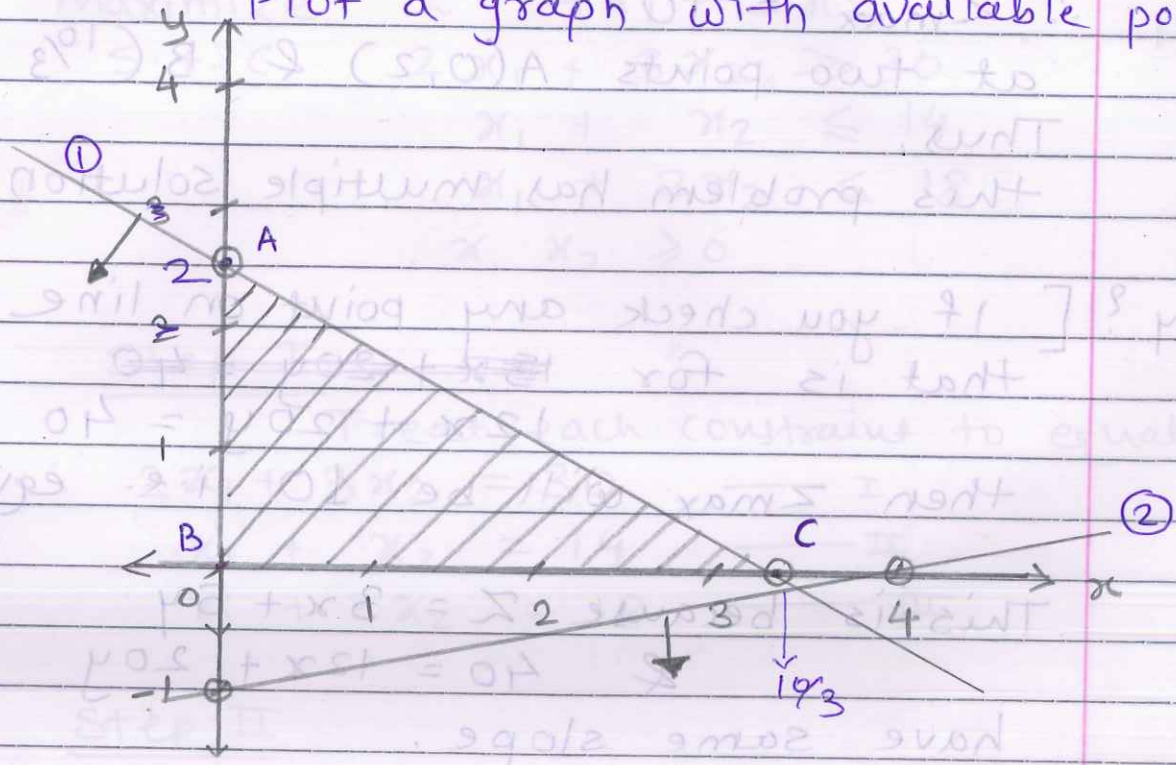 Plot a graph with available po
y
4
①
3
A
2
2
1
B
C
②
0
1
2
3
4
x
-1
10/3